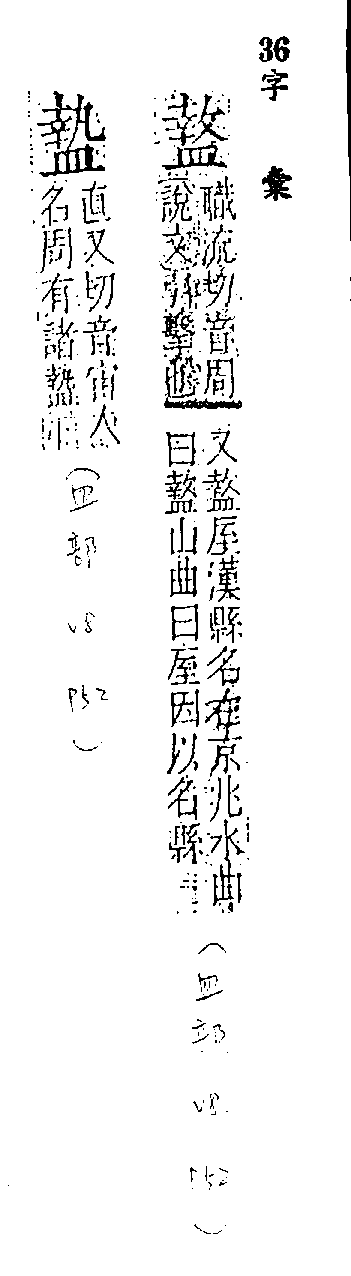 36字彙
盩
職流切音周
說文引擊也
又盩厔漢縣名在京兆水曲
曰盩山曲曰厔因以名縣
(皿部 v8 P52)
盩
直又切音宙人
名周有諸盩
(皿部 v8 P52)